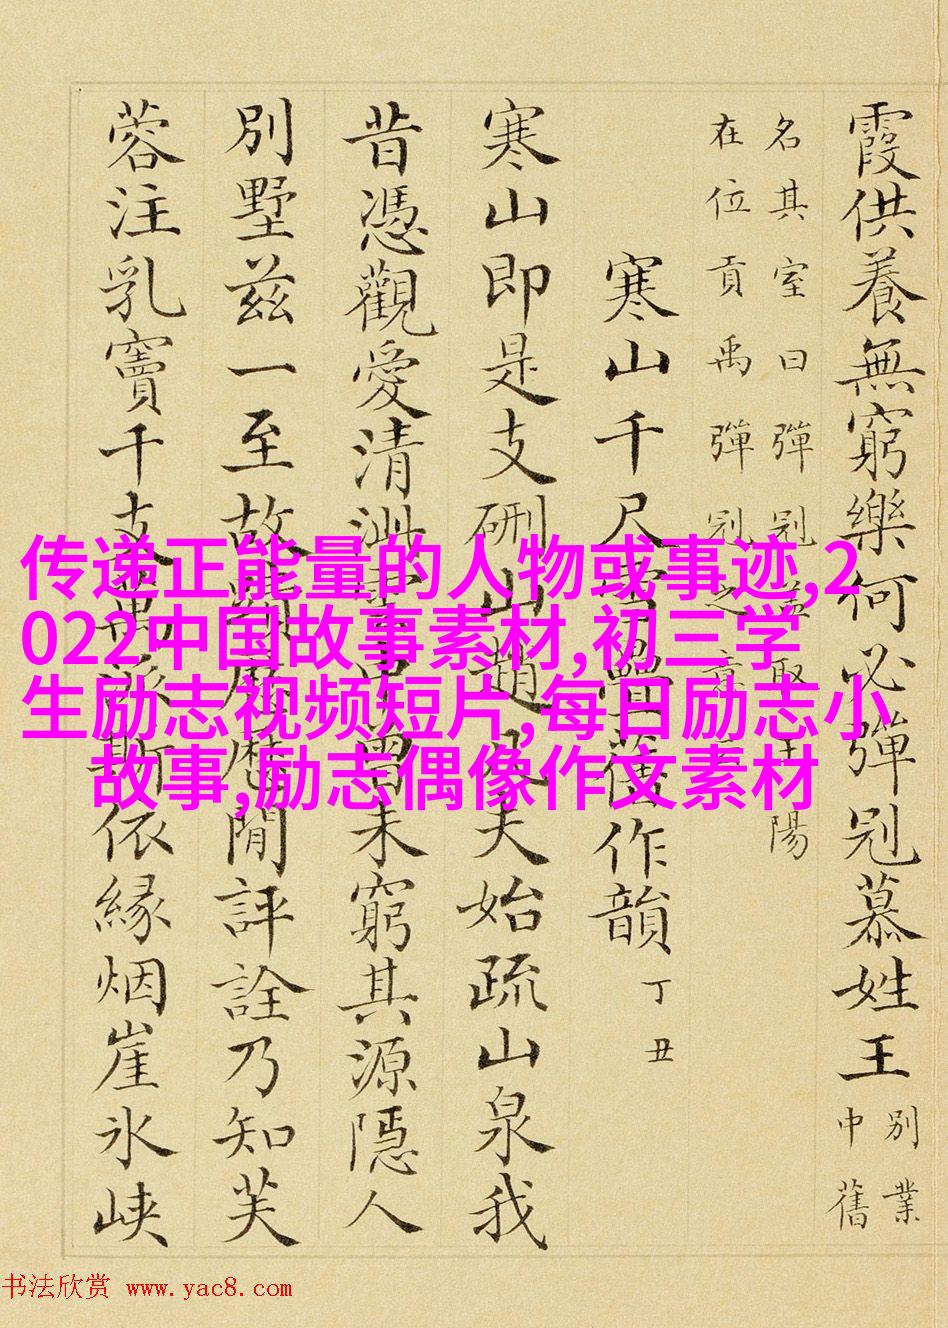 霞供養無窮樂何必彈冠慕姓王
別業
中舊
名其室曰彈冠取王陽
在位貢禹彈冠之意
寒山千尺雪疊舊作韻 丁丑
寒山即是支硎山趙凡夫始疏山泉我
昔憑觀愛清泚曾未窮其源隱人
別墅茲一至故歷歷閒評詮乃知芙
蓉注乳竇千支萬派斯依緣烟崖氷峡
传递正能量的人物或事迹,2
022中国故事素材,初三学
生励志视频短片,每日励志小
故事,励志偶像作文素材
书法欣赏 www.yac8.com